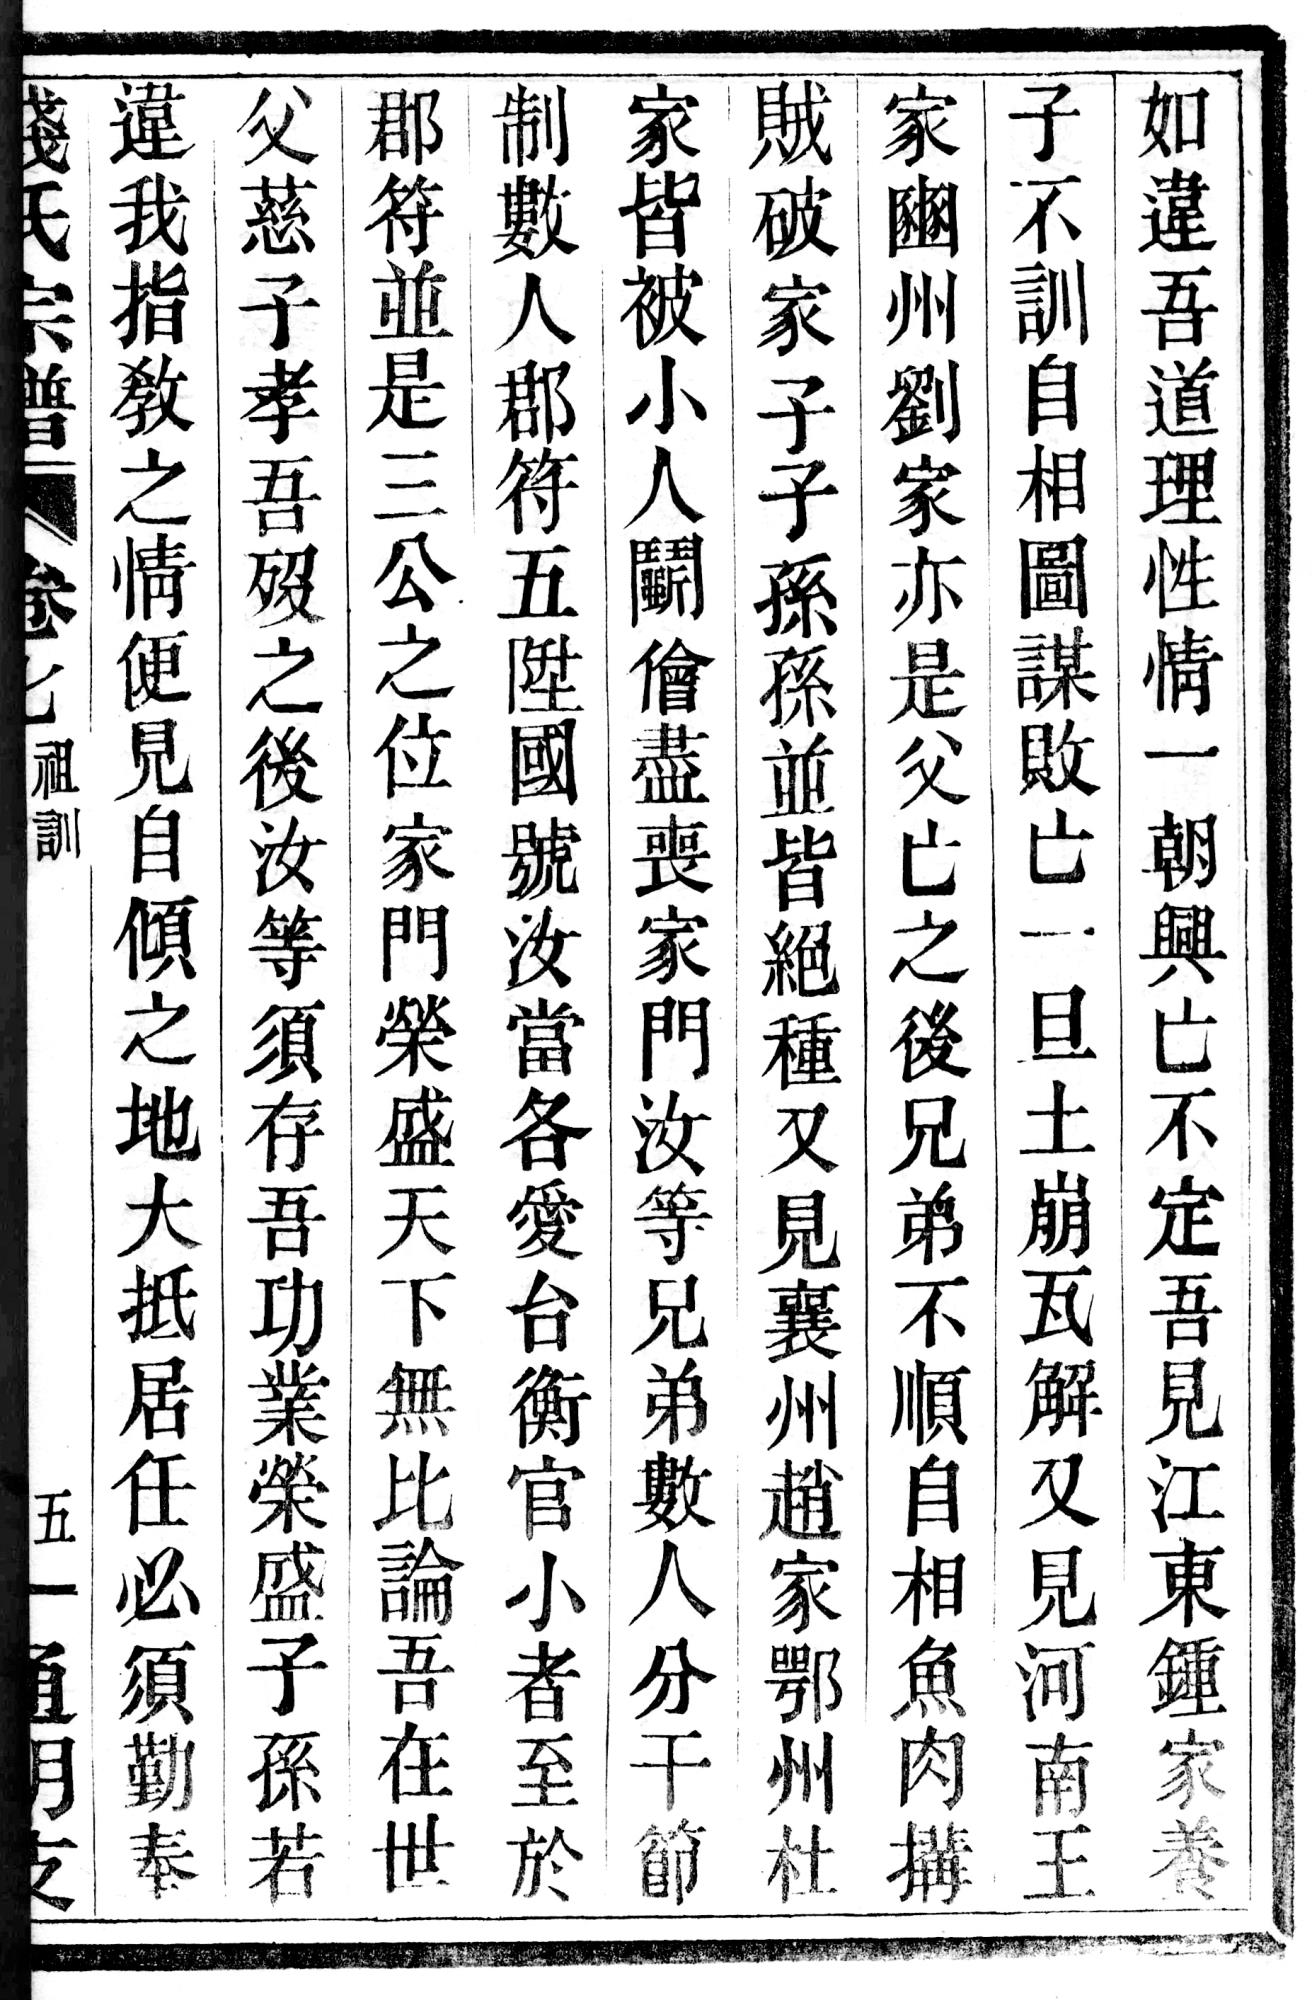 如違吾道理性情一朝興亡不定吾見江東鍾家養
子不訓自相圖謀敗亡一旦土崩瓦解又見河南王
家豳州劉家亦是父亡之後兄弟不順自相魚肉搆
賊破家子子孫孫並皆絕種又見襄州趙家鄂州杜
家皆被小人鬭儈盡喪家門汝等兄弟數人分干節
制數人郡符五陞國號汝當各愛台衡官小者至於
郡符並是三公之位家門榮盛天下無比論吾在世
父慈子孝吾歿之後汝等須存吾功業榮盛子孫若
違我指敎之情便見自傾之地大抵居任必須勤奉
錢氏宗譜 卷七 祖訓 五一 通明支